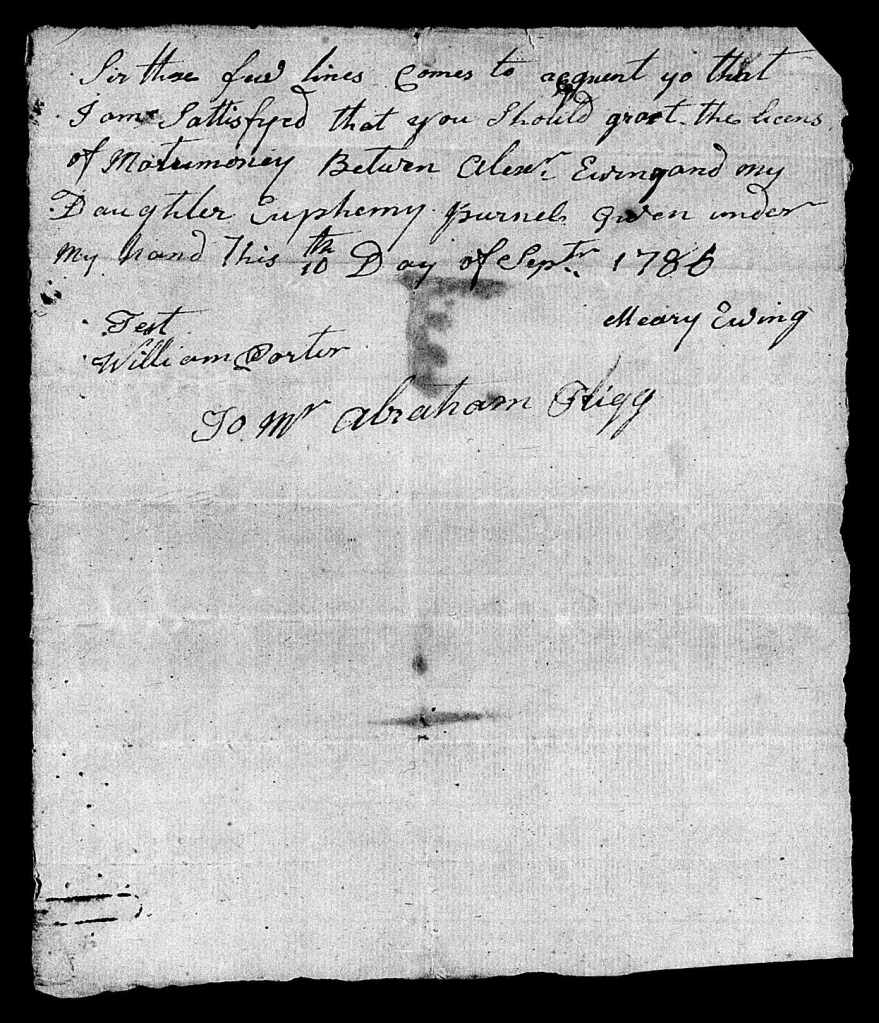 Sir these few lines comes to acquent yo that
I am Sattisfyed that you Should grant the licens
of Matrimoney Between Alexr. Ewing and my
Daughter Euphemy purnel Given under
my hand This 10th Day of Septr. 1786
Meary Ewing
Test
William Porter
To Mr Abraham